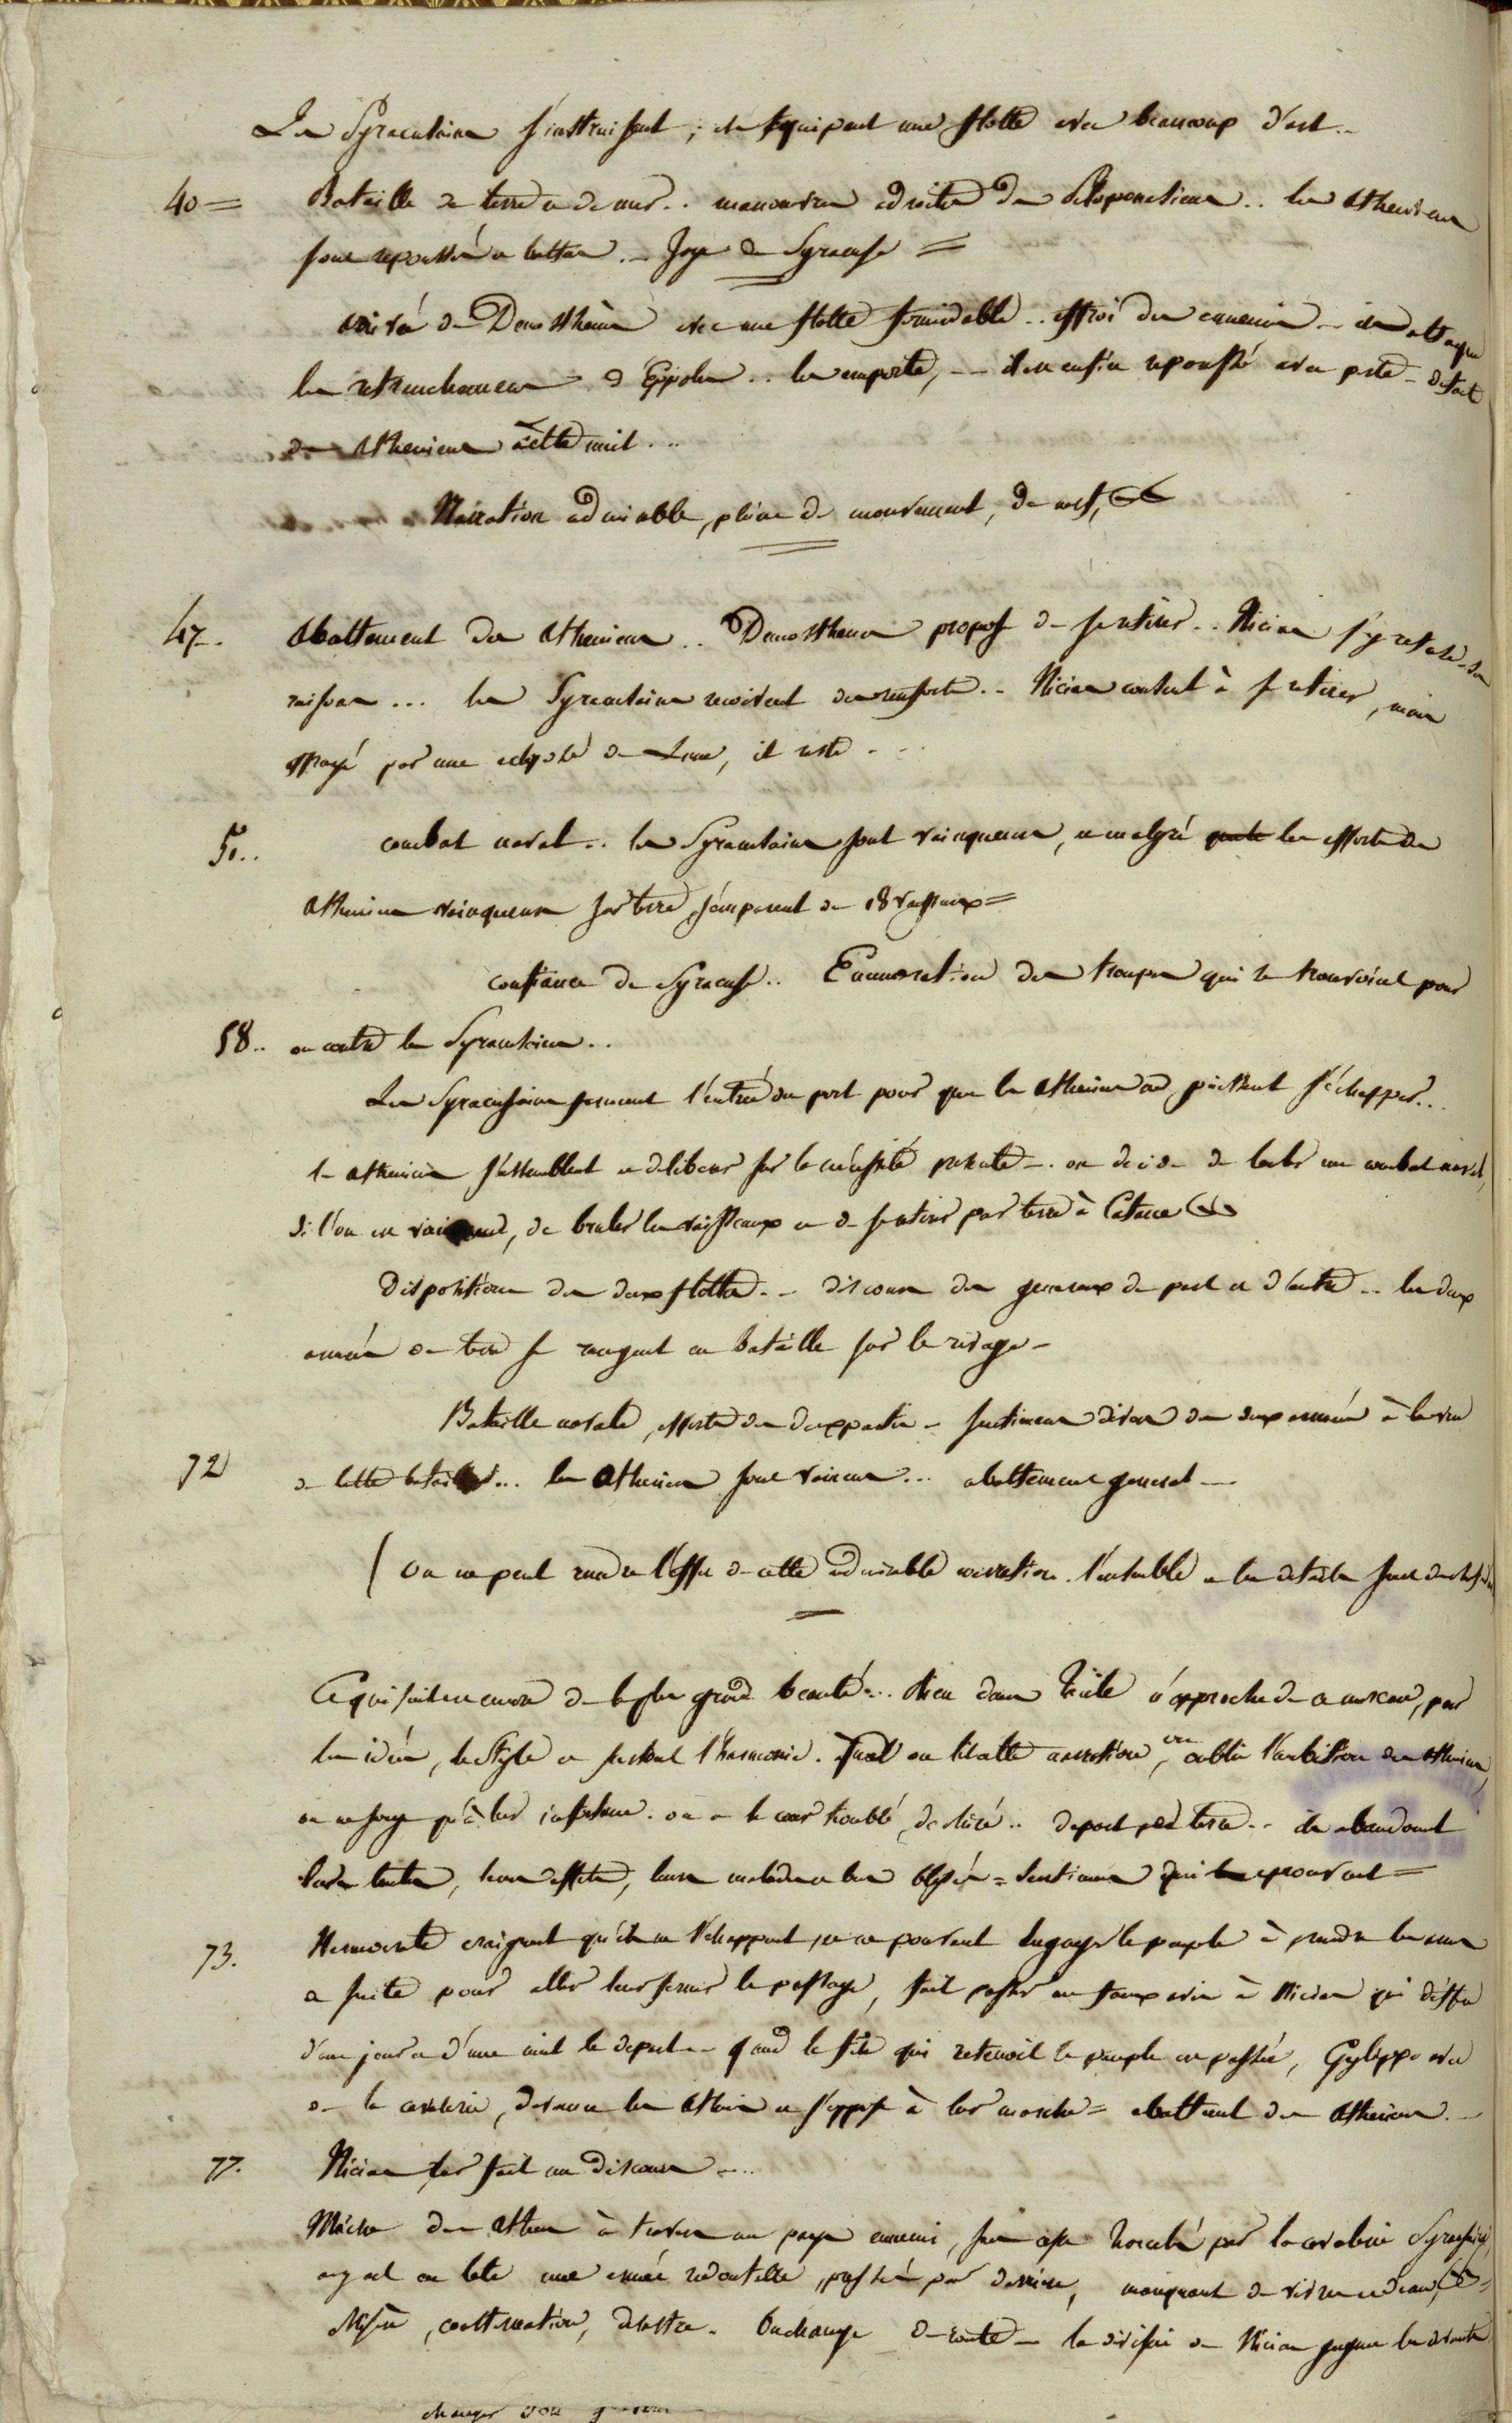 Les Syracusains s'instruisent, et equipent une flotte avec beaucoup d'art..
40 = Bataille de terre et de mer.. manoeuvres adroites des Peloponesiens.. les Atheniens
sont repoussés et battus.. Joye de Syracuse =
arrivée de Demosthène avec une flotte formidable.. effroi des ennemis.. ils attaque
les retranchemens d'Epipoles.. les emporte, -- il est enfin repoussé avec perte - defaite
des Atheniens cette nuit...
Narration admirable, pleine de mouvement, de nerf, &c
47.. Abattement des Atheniens.. Demosthene propose de se retirer.. Nicias s'y refuse. ses
raisons... les Syracusains recoivent des renforts.. Nicias consent à se retirer, mais
effrayé par une eclypse de Lune, il reste...
51.. combat naval.. les Syracusains sont vainqueurs, et malgré les efforts des
Atheniens vainqueurs sur terre, s'emparent de 18 vaisseaux =
confiance de Syracuse.. Enumeration des troupes qui se trouvoient pour
58.. ou contre les Syracusains..
Les Syracusains ferment l'entrée du port pour que les Atheniens ne puissent s'échapper...
les Atheniens s'assemblent et deliberent sur la nécessité presente.. on decide de tenter un combat naval,
si l'on est vaincu, de bruler les vaisseaux et de se retirer par terre à Catane
Dispositions des deux flottes.. discours des generaux de part et d'autre.. les deux
armées de terre se rangent en bataille sur le rivage -
Bataille navale, efforts des deux partis - sentimens divers des deux armées à la vue
72 de cette bataille... les Atheniens sont vaincus... abattement general --
(on ne peut rendre l'effet de cette admirable narration. l'ensemble et les details sont
Ce qui suit est encore de la plus grande beauté... rien dans Tacite n'approche de ce morceau, par
les idées, le style et surtout l'harmonie. Quand on lit cette narration, on oublie l'ambition des Atheniens,
on ne songe qu'à leur infortune. on a le coeur troublé, dechiré.. depart par terre.. ils abandonnent
leurs tentes, leurs effets, leurs malades et leurs blessés = sentimens qu'ils eprouvent =
73. Hermocrate craignant qu'ils ne s'échappent, et ne pouvant engager le peuple à prendre les armes
de suite pour aller leur fermer le passage, fait passer un faux avis à Nicias qui differe
d'un jour et d'une nuit le depart.. quand la fete qui retenoit le peuple est passée, Gylippe avec
de la cavalerie, devance les Atheniens et s'oppose à leur marche = abattement des Atheniens..
77. Nicias leur fait un discours...
Marche des Atheniens à travers un pays ennemi, sans cesse harcelés par la cavalerie Syracusaine,
ayant en tete une armée redoutable, pressés par derriere, manquant de vivres et d'eau, &c =
Misère, consternation, desastre. On change de route - la division de Nicias gagne les devants
changer son